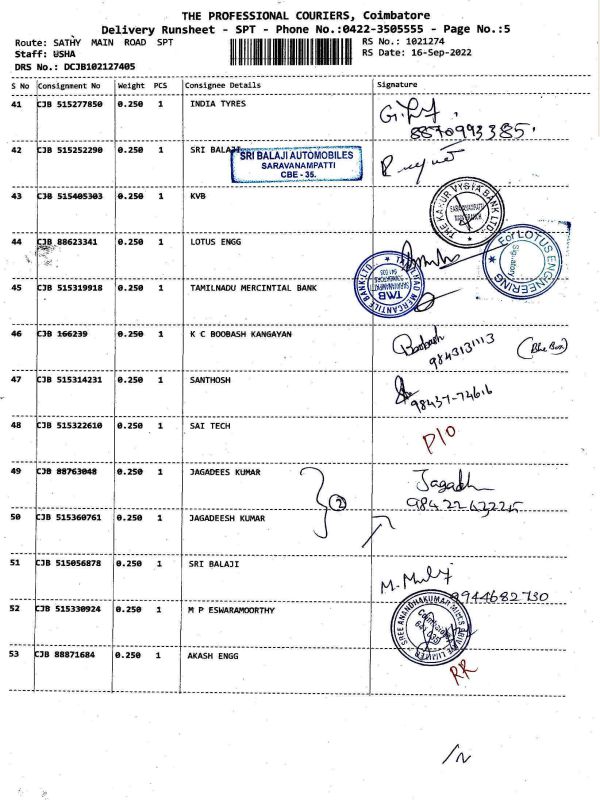 THE PROFESSIONAL COURIERS, Coimbatore
Delivery Runsheet - SPT - Phone No.:0422-3505555 - Page No.:5
Route: SATHY MAIN ROAD SPT
RS No.: 1021274
Staff: USHA
RS Date: 16-Sep-2022
DRS No.: DCJB102127405
S No Consignment No Weight PCS Consignee Details Signature
41 CJB 515277850 0.250 1 INDIA TYRES
8870993385
42 CJB 515252290 0.250 1 SRI BALAJI
SRI BALAJI AUTOMOBILES
SARAVANAMPATTI
CBE - 35.
43 CJB 515405303 0.250 1 KVB
THE KARUR VYSYA BANK LTD.
44 CJB 88623341 0.250 1 LOTUS ENGG
For LOTUS ENGINEERING
Signatory
45 CJB 515319918 0.250 1 TAMILNADU MERCINTIAL BANK
TAMILNAD MERCANTILE BANK LTD.
TMB
46 CJB 166239 0.250 1 K C BOOBASH KANGAYAN
Boobash
9843131113
(Blue Box)
47 CJB 515314231 0.250 1 SANTHOSH
98437-74616
48 CJB 515322610 0.250 1 SAI TECH
P/O
49 CJB 88763048 0.250 1 JAGADEES KUMAR
Jagadh
2
50 CJB 515360761 0.250 1 JAGADEESH KUMAR
51 CJB 515056878 0.250 1 SRI BALAJI
9944682730
52 CJB 515330924 0.250 1 M P ESWARAMOORTHY
53 CJB 88871684 0.250 1 AKASH ENGG
RR